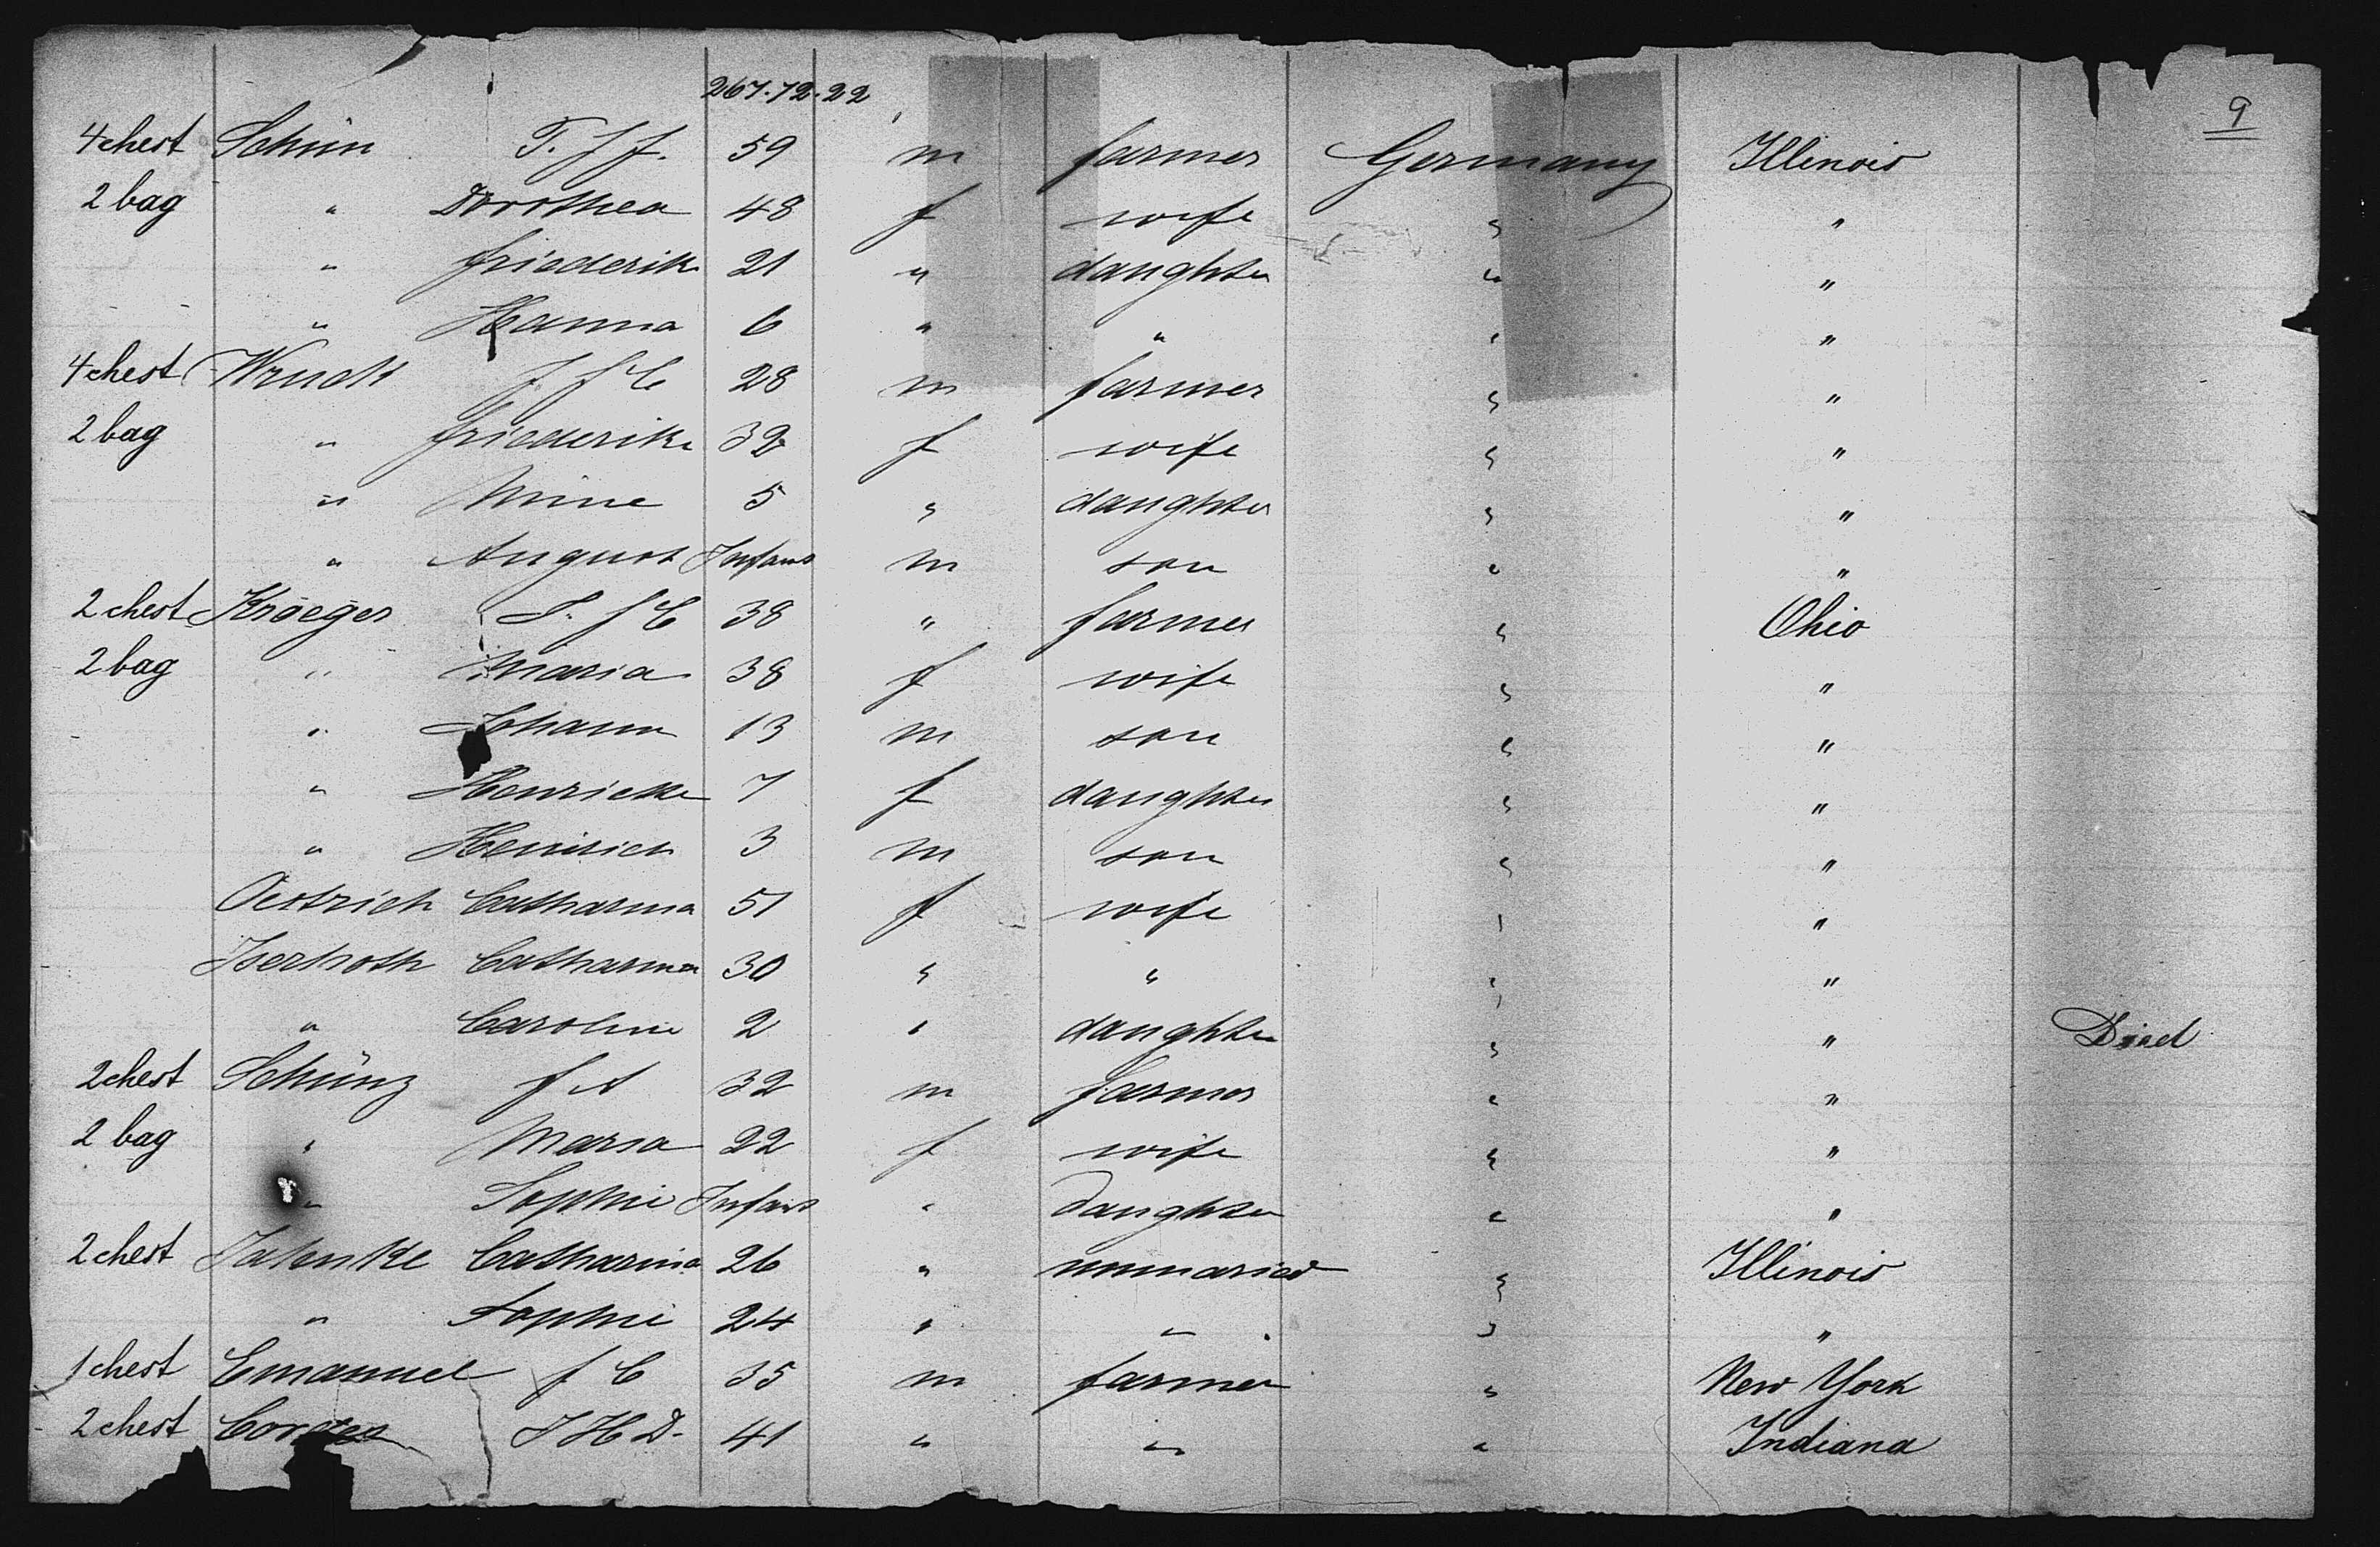 267.72.22
9
4 chest Schün T. J f. 59 m farmer Germany Illinois
2 bag " Dorothea 48 f wife " "
" Friederike 21 " daughter " "
" Hanna 6 " " " "
4 chest Wruck J f C 28 m farmer " "
2 bag " Friederike 32 f wife " "
" Mine 5 " daughter " "
" August Infant m son " "
2 chest Kröeger L. f C 38 " farmer " Ohio
2 bag " Maria 38 f wife " "
" Johann 13 m son " "
" Henricke 7 f daughter " "
" Heinrich 3 m son " "
Oestrich Catharina 51 f wife " "
Iserhoth Catharina 30 " " " "
" Caroline 2 " daughter " " Died
2 chest Schünz f A 32 m farmer " "
2 bag " Maria 22 f wife " "
" Sophie Infant " daughter " "
2 chest Jahnke Catharina 26 " unmaried " Illinois
" Sophie 24 " " " "
1 chest Emanuel f C 35 m farmer " New York
2 chest J H D. 41 " " " Indiana